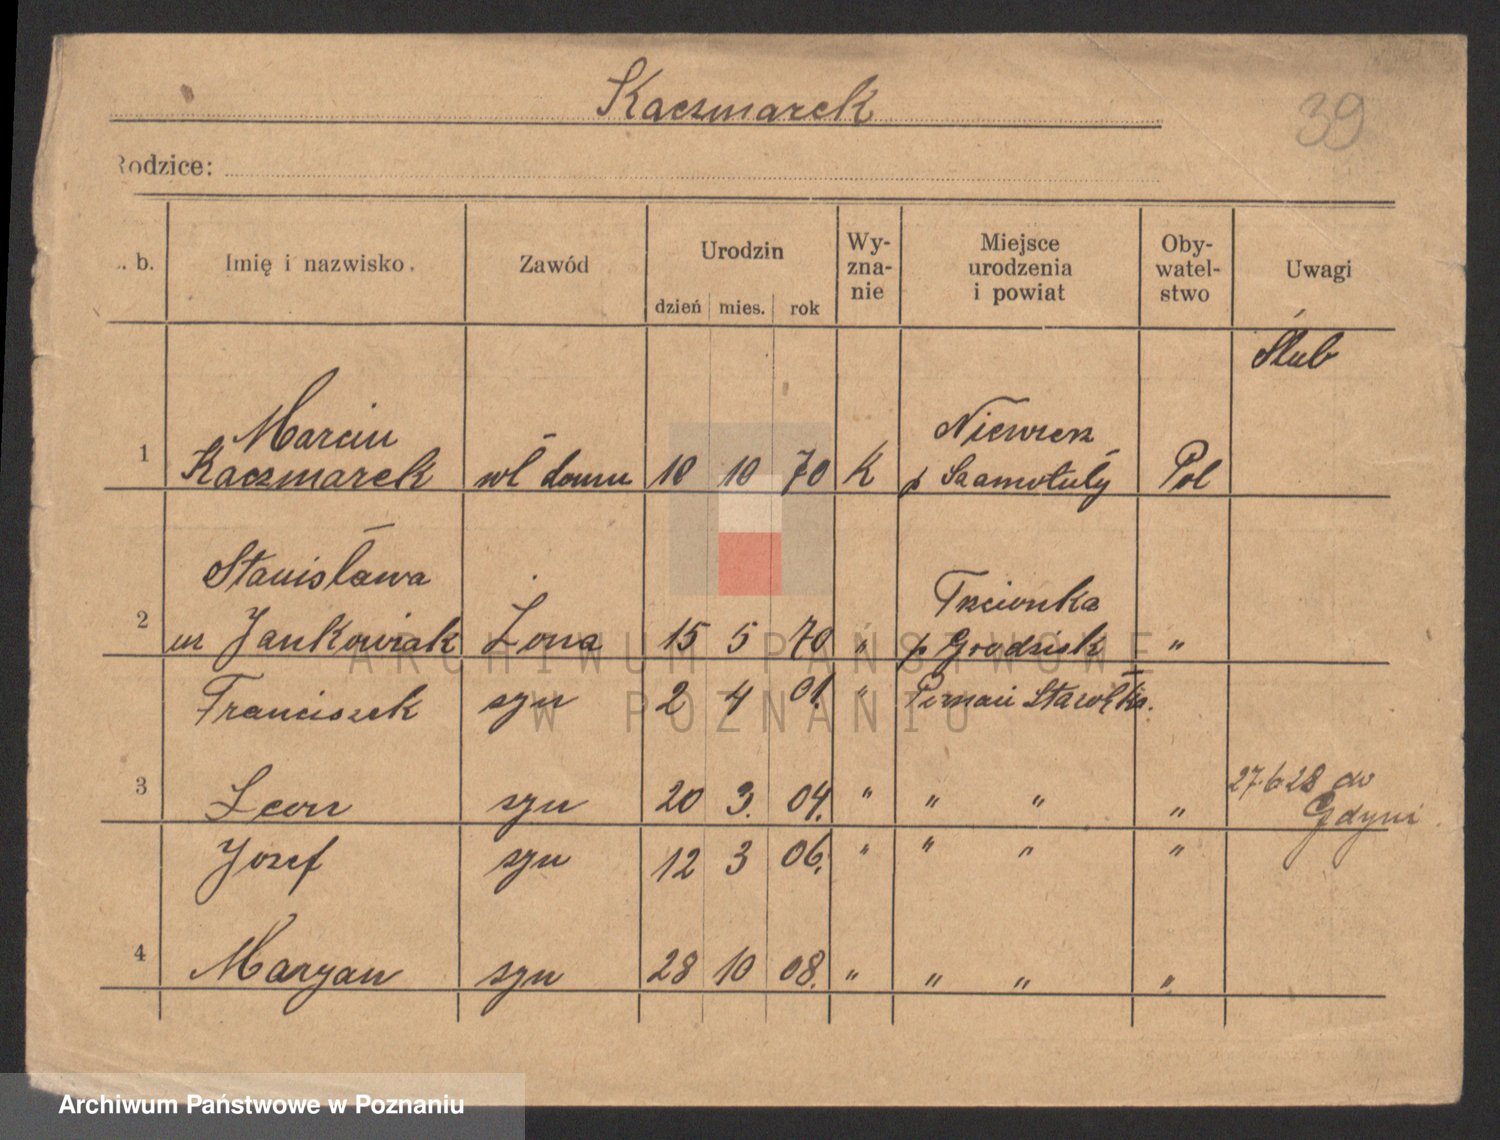 Kaczmarek
39
Rodzice:
b. Imię i nazwisko. Zawód Urodzin dzień mies. rok Wy-zna-nie Miejsce urodzenia i powiat Oby-watel-stwo Uwagi
Ślub
Marcin Niewierz
1 Kaczmarek wł domu 10 10 70 K p Szamotuły Pol
Stanisława Trzcionka
2 ur Jankowiak Żona 15 5 70 " p Grodzisk "
Franciszek syn 2 4 01. " Poznań Starołęka.
27.6 28 do
3 Leon syn 20 3. 04. " " " " Gdyni
Jozef syn 12 3 06. " " " "
4 Maryan syn 28 10 08. " " " "
ARCHIWUM PAŃSTWOWE
W POZNANIU
Archiwum Państwowe w Poznaniu